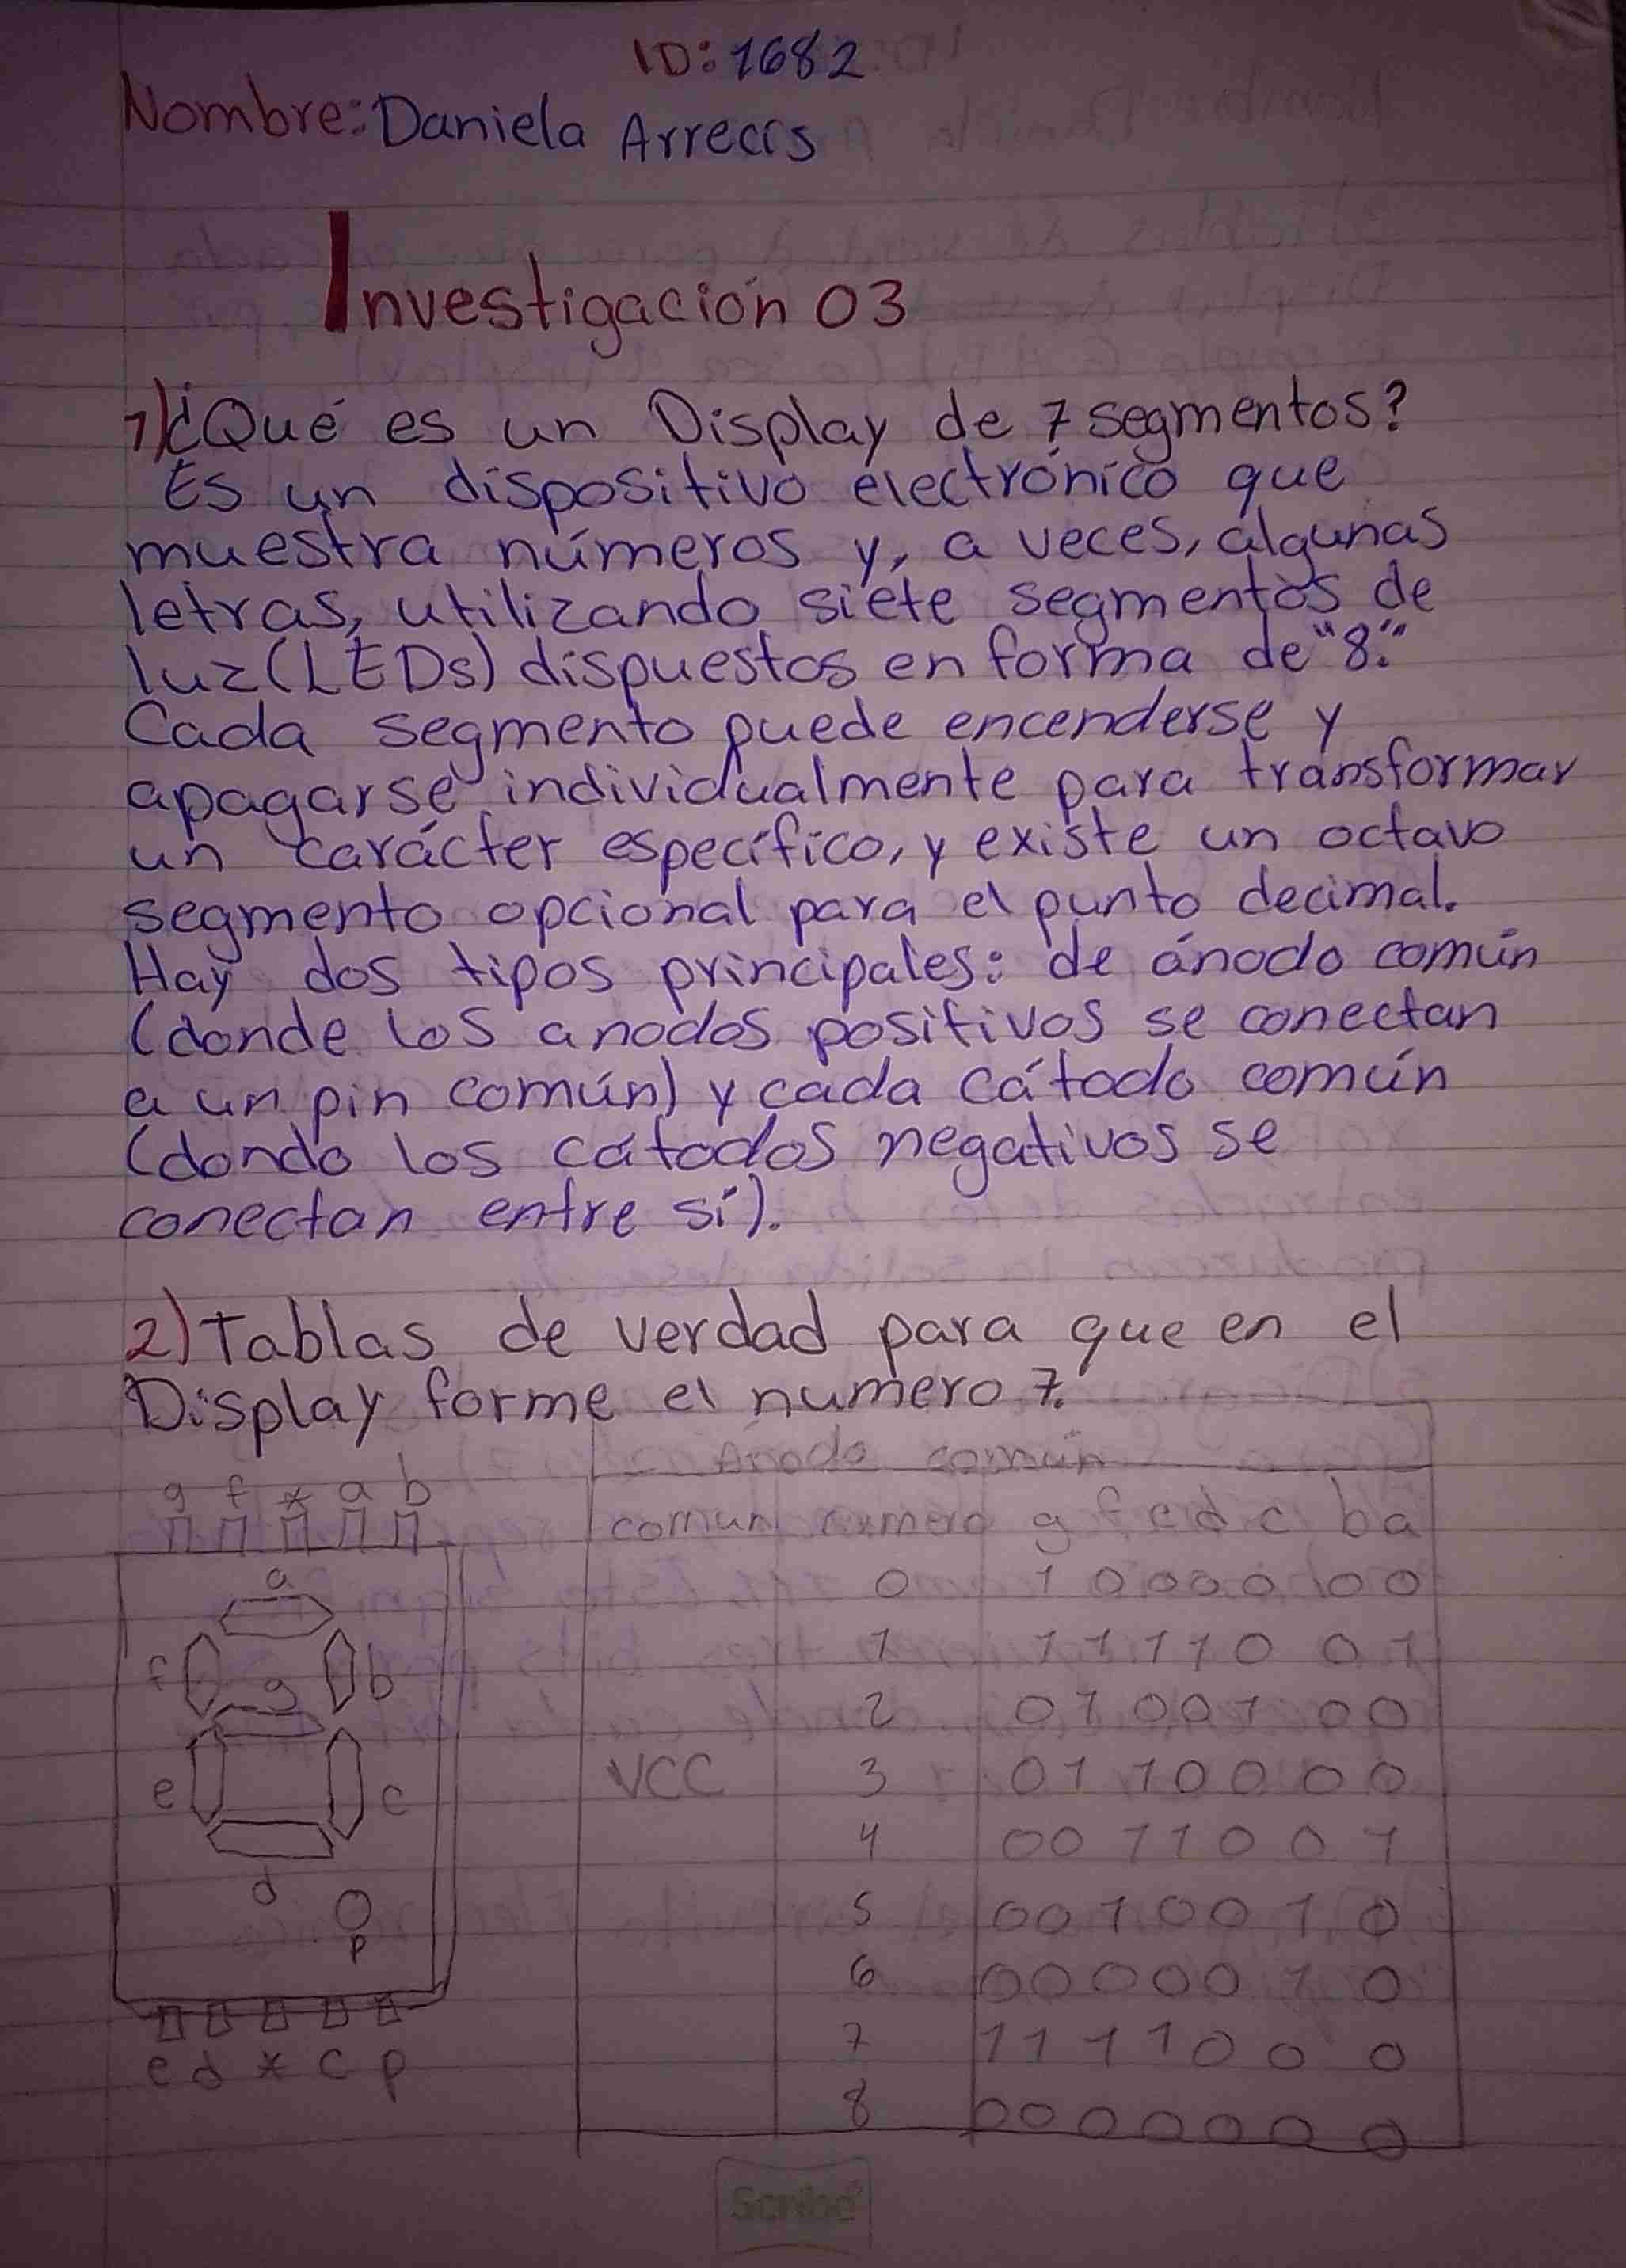 ID: 1682
Nombre: Daniela Arrecis
Investigación 03
1) ¿Qué es un Display de 7 segmentos?
Es un dispositivo electrónico que
muestra números y, a veces, algunas
letras, utilizando siete segmentos de
luz (LEDs) dispuestos en forma de "8."
Cada segmento puede encenderse y
apagarse individualmente para transformar
un carácter específico, y existe un octavo
segmento opcional para el punto decimal.
Hay dos tipos principales: de ánodo común
(donde los anodos positivos se conectan
a un pin común) y cada cátodo común
(dondo los cátodos negativos se
conectan entre sí).
2) Tablas de verdad para que en el
Display forme el numero 7.
g f * a b
a
f b
g
e c
d
P
e d * c p
Anodo común
comun numero g f e d c b a
0 1 0 0 0 0 0 0
1 1 1 1 1 0 0 1
2 0 1 0 0 1 0 0
VCC 3 0 1 1 0 0 0 0
4 0 0 1 1 0 0 1
5 0 0 1 0 0 1 0
6 0 0 0 0 0 1 0
7 1 1 1 1 0 0 0
8 0 0 0 0 0 0 0
Scribe